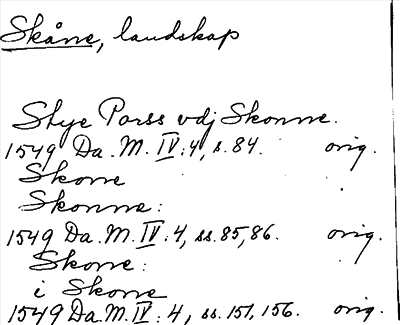 Skåne, landskap
Stye Porss vdj Skonne.
1549 Da. M. IV:4, s. 84. orig.
Skone
Skonne:
1549 Da. M. IV:4, ss. 85, 86. orig.
Skone:
i Skone
1549 Da. M. IV:4, ss. 151, 156. orig.